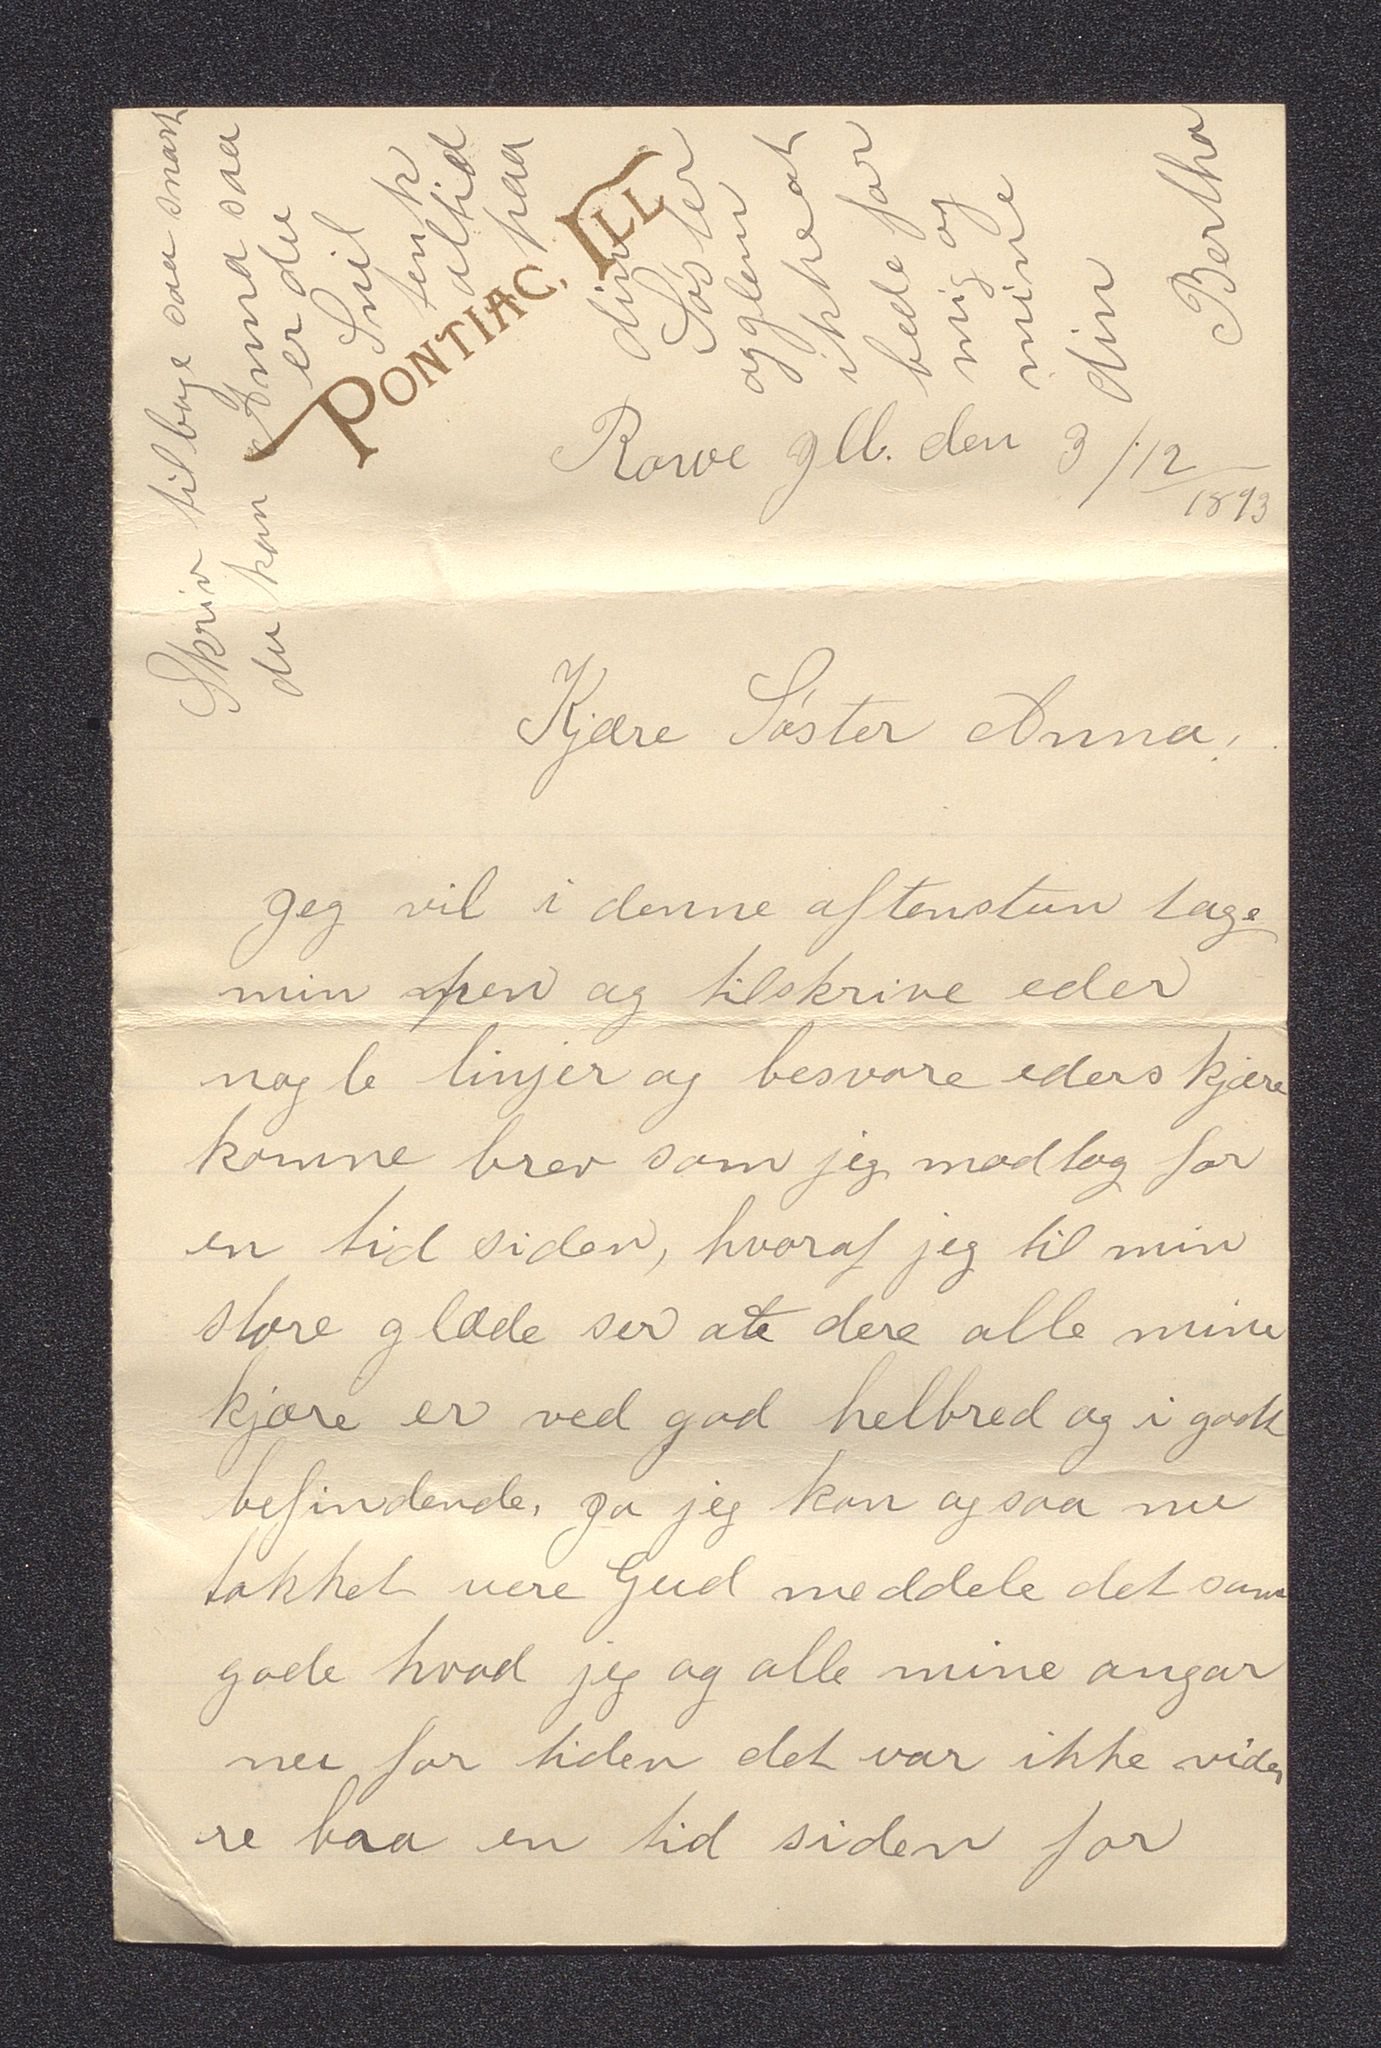 Pontiac, Ill
Rowe Ill. den 3/12
1893
Kjære Søster Anna!
Jeg vil i denne aftenstun tage
min pen og tilskrive eder
nogle linjer og besvare eders kjære
komne brev som jeg modtog for
en tid siden, hvoraf jeg til min
store glæde ser at dere alle mine
kjære er ved god helbred og i godt
befindende, ja jeg kan ogsaa nu
takket være Gud meddele det sam
gode hvad jeg og alle mine angar
nu for tiden det var ikke vide
re baa en tid siden for
Skriv tilbage saa snart
du kan Anna saa
er du
Snil
tenk
altid
paa
din
Søster
og glem
ikke at
bede for
mig og
mine
din
Bertha